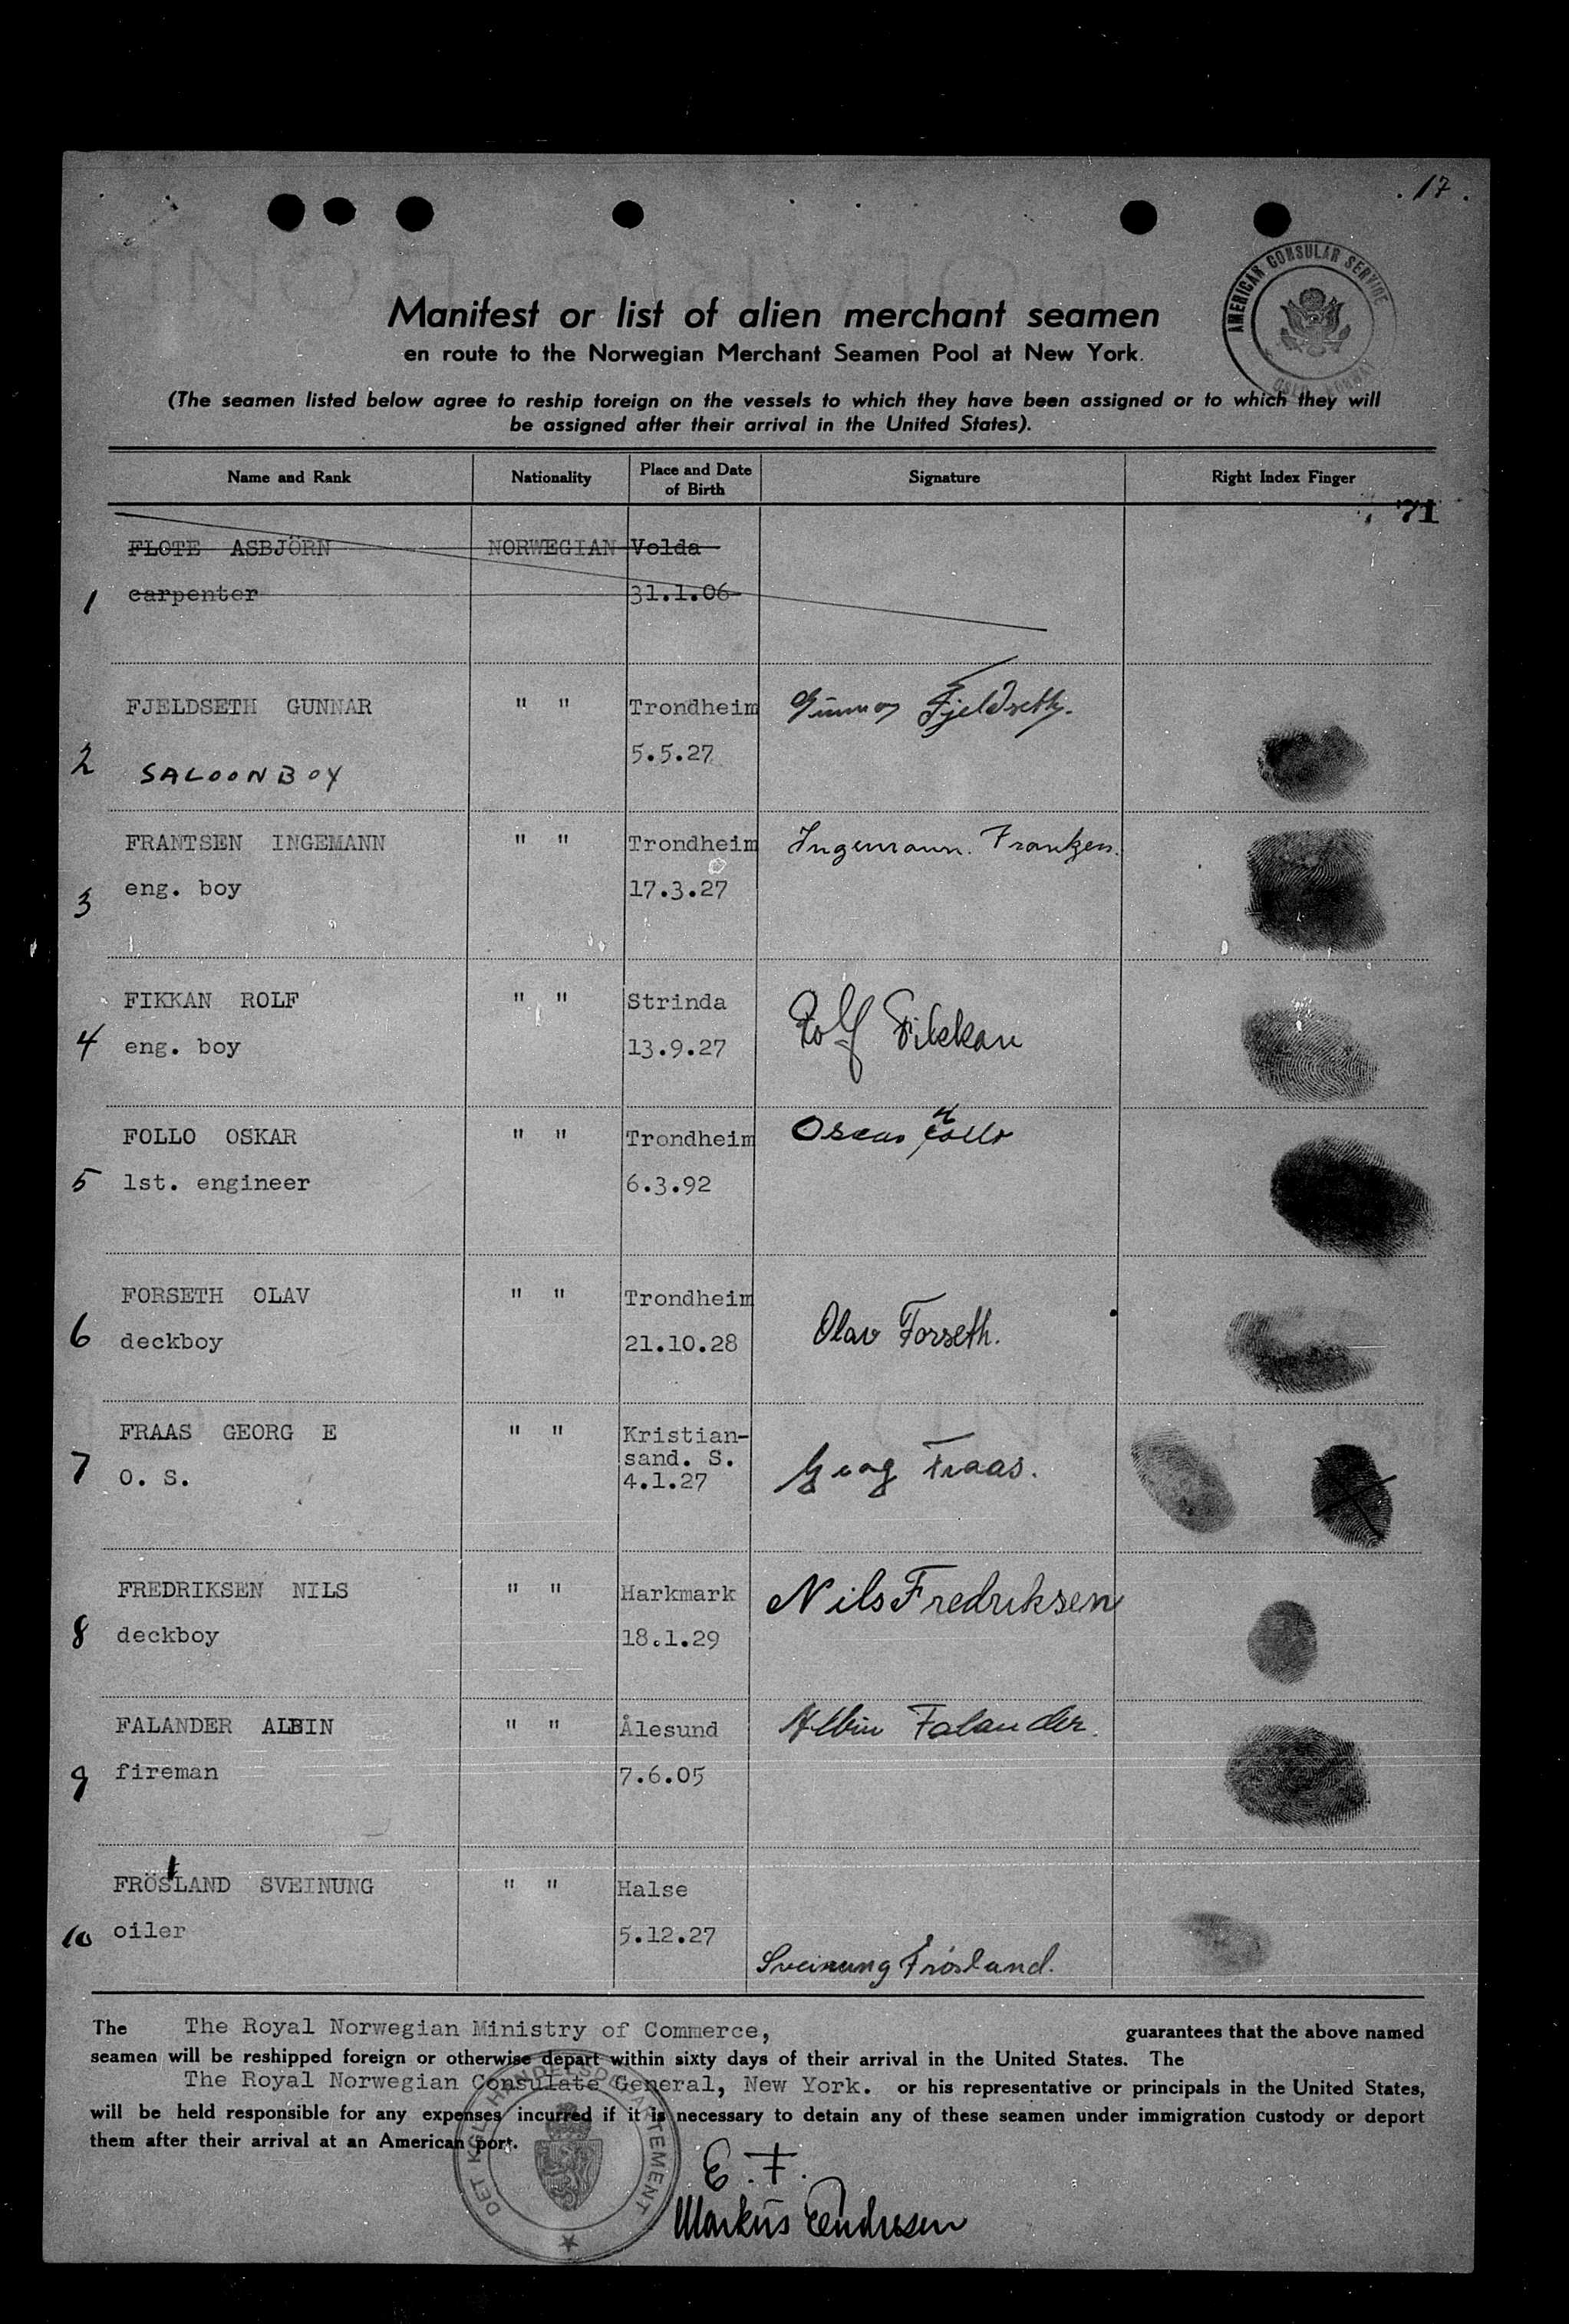 . 17 .
AMERICAN CONSULAR SERVICE
OSLO, NORWAY
Manifest or list of alien merchant seamen
en route to the Norwegian Merchant Seamen Pool at New York.
(The seamen listed below agree to reship foreign on the vessels to which they have been assigned or to which they will
be assigned after their arrival in the United States).
Name and Rank Nationality Place and Date of Birth Signature Right Index Finger
71
FLOTE ASBJÖRN NORWEGIAN Volda
1 carpenter 31.1.06
FJELDSETH GUNNAR " " Trondheim Gunnar Fjeldseth.
2 SALOONBOY 5.5.27
FRANTSEN INGEMANN " " Trondheim Ingemann. Frantzen.
3 eng. boy 17.3.27
FIKKAN ROLF " " Strinda Rolf Fikkan
4 eng. boy 13.9.27
FOLLO OSKAR " " Trondheim Oscar Follo
5 1st. engineer 6.3.92
FORSETH OLAV " " Trondheim Olav Forseth.
6 deckboy 21.10.28
FRAAS GEORG E " " Kristian-
sand. S. Georg Fraas.
7 O. S. 4.1.27
FREDRIKSEN NILS " " Harkmark Nils Fredriksen
8 deckboy 18.1.29
FALANDER ALBIN " " Ålesund Albin Falander.
9 fireman 7.6.05
FRÖSLAND SVEINUNG " " Halse
10 oiler 5.12.27
Sveinung Frösland.
The The Royal Norwegian Ministry of Commerce, guarantees that the above named
seamen will be reshipped foreign or otherwise depart within sixty days of their arrival in the United States. The
The Royal Norwegian Consulate General, New York. or his representative or principals in the United States,
will be held responsible for any expenses incurred if it is necessary to detain any of these seamen under immigration custody or deport
them after their arrival at an American port.
DET KGL. HANDELSDEPARTEMENT
E. F.
Markus Endresen